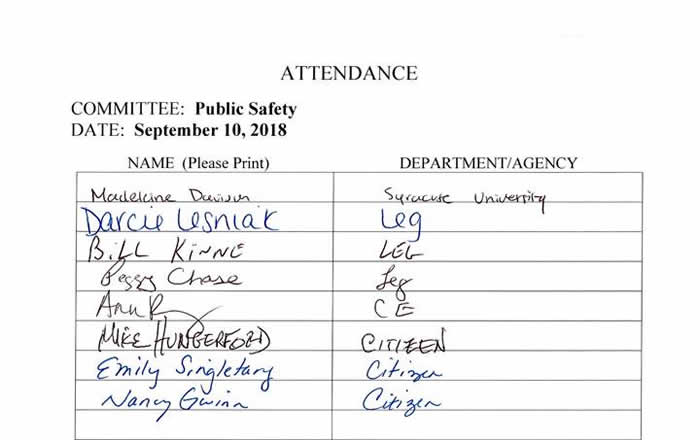 ATTENDANCE
COMMITTEE: Public Safety
DATE: September 10, 2018
NAME (Please Print) DEPARTMENT/AGENCY
Madeleine Davison Syracuse University
Darcie Lesniak Leg
Bill Kinne LEG
Peggy Chase Leg
Ann R CE
Mike Hungerford Citizen
Emily Singletary Citizen
Nancy Gwinn Citizen